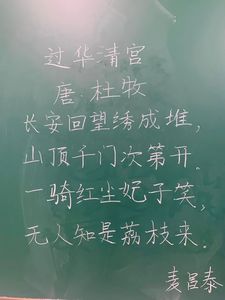 过华清宫
唐·杜牧
长安回望绣成堆，
山顶千门次第开。
一骑红尘妃子笑，
无人知是荔枝来。
麦昌泰